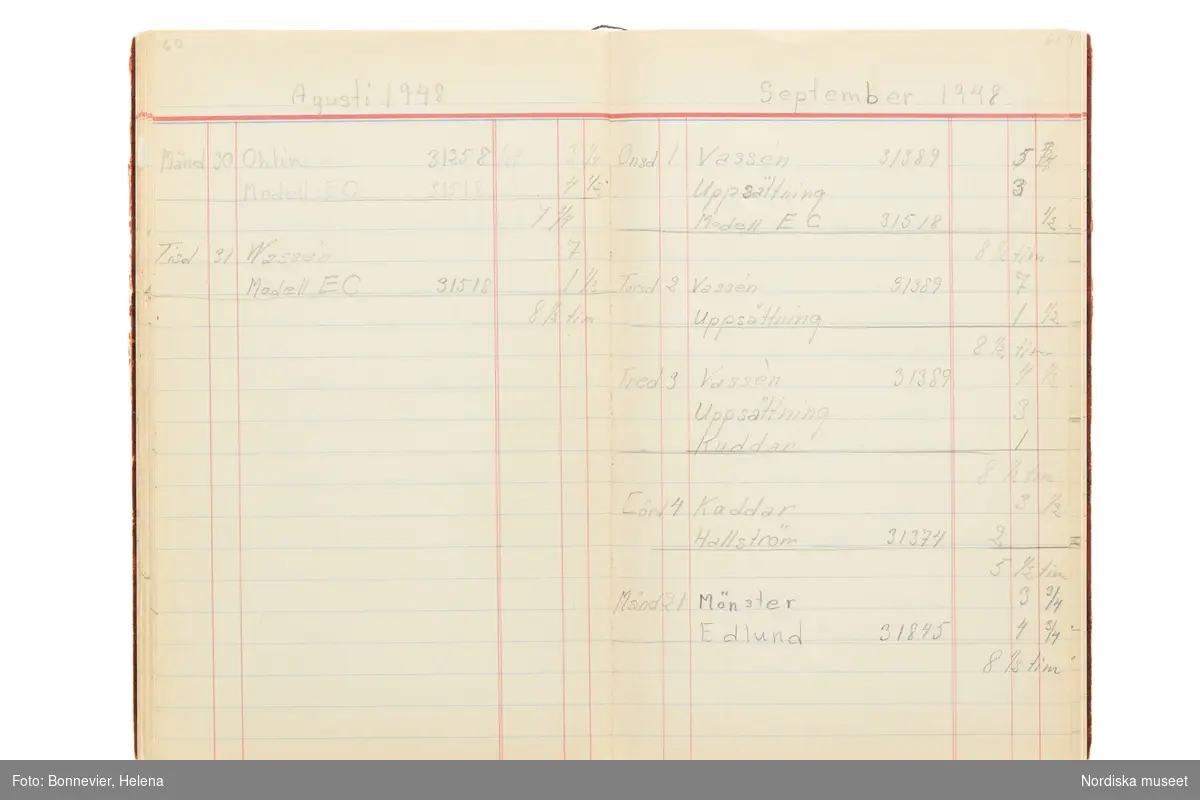 60
Agusti 1948
Månd 30 Ohlin 31258 3 1/4
Modell EC 31518 4 1/2
7 3/4
Tisd 31 Wassén 7
Modell EC 31518 1 1/2
8 1/2 tim
September 1948
Onsd 1 Vassén 31389 5
Uppsättning 3
Modell EC 31518 1/2
8 1/2 tim
Torsd 2 Vassén 31389 7
Uppsättning 1 1/2
8 1/2 tim
Fred 3 Vassén 31389 4 1/2
Uppsättning 3
Kuddar 1
8 1/2 tim
Lörd 4 Kuddar 3 1/2
Hallström 31374 2
5 1/2 tim
Månd 21 Mönster 3 3/4
Edlund 31845 4 3/4
8 1/2 tim
Foto: Bonnevier, Helena
Nordiska museet